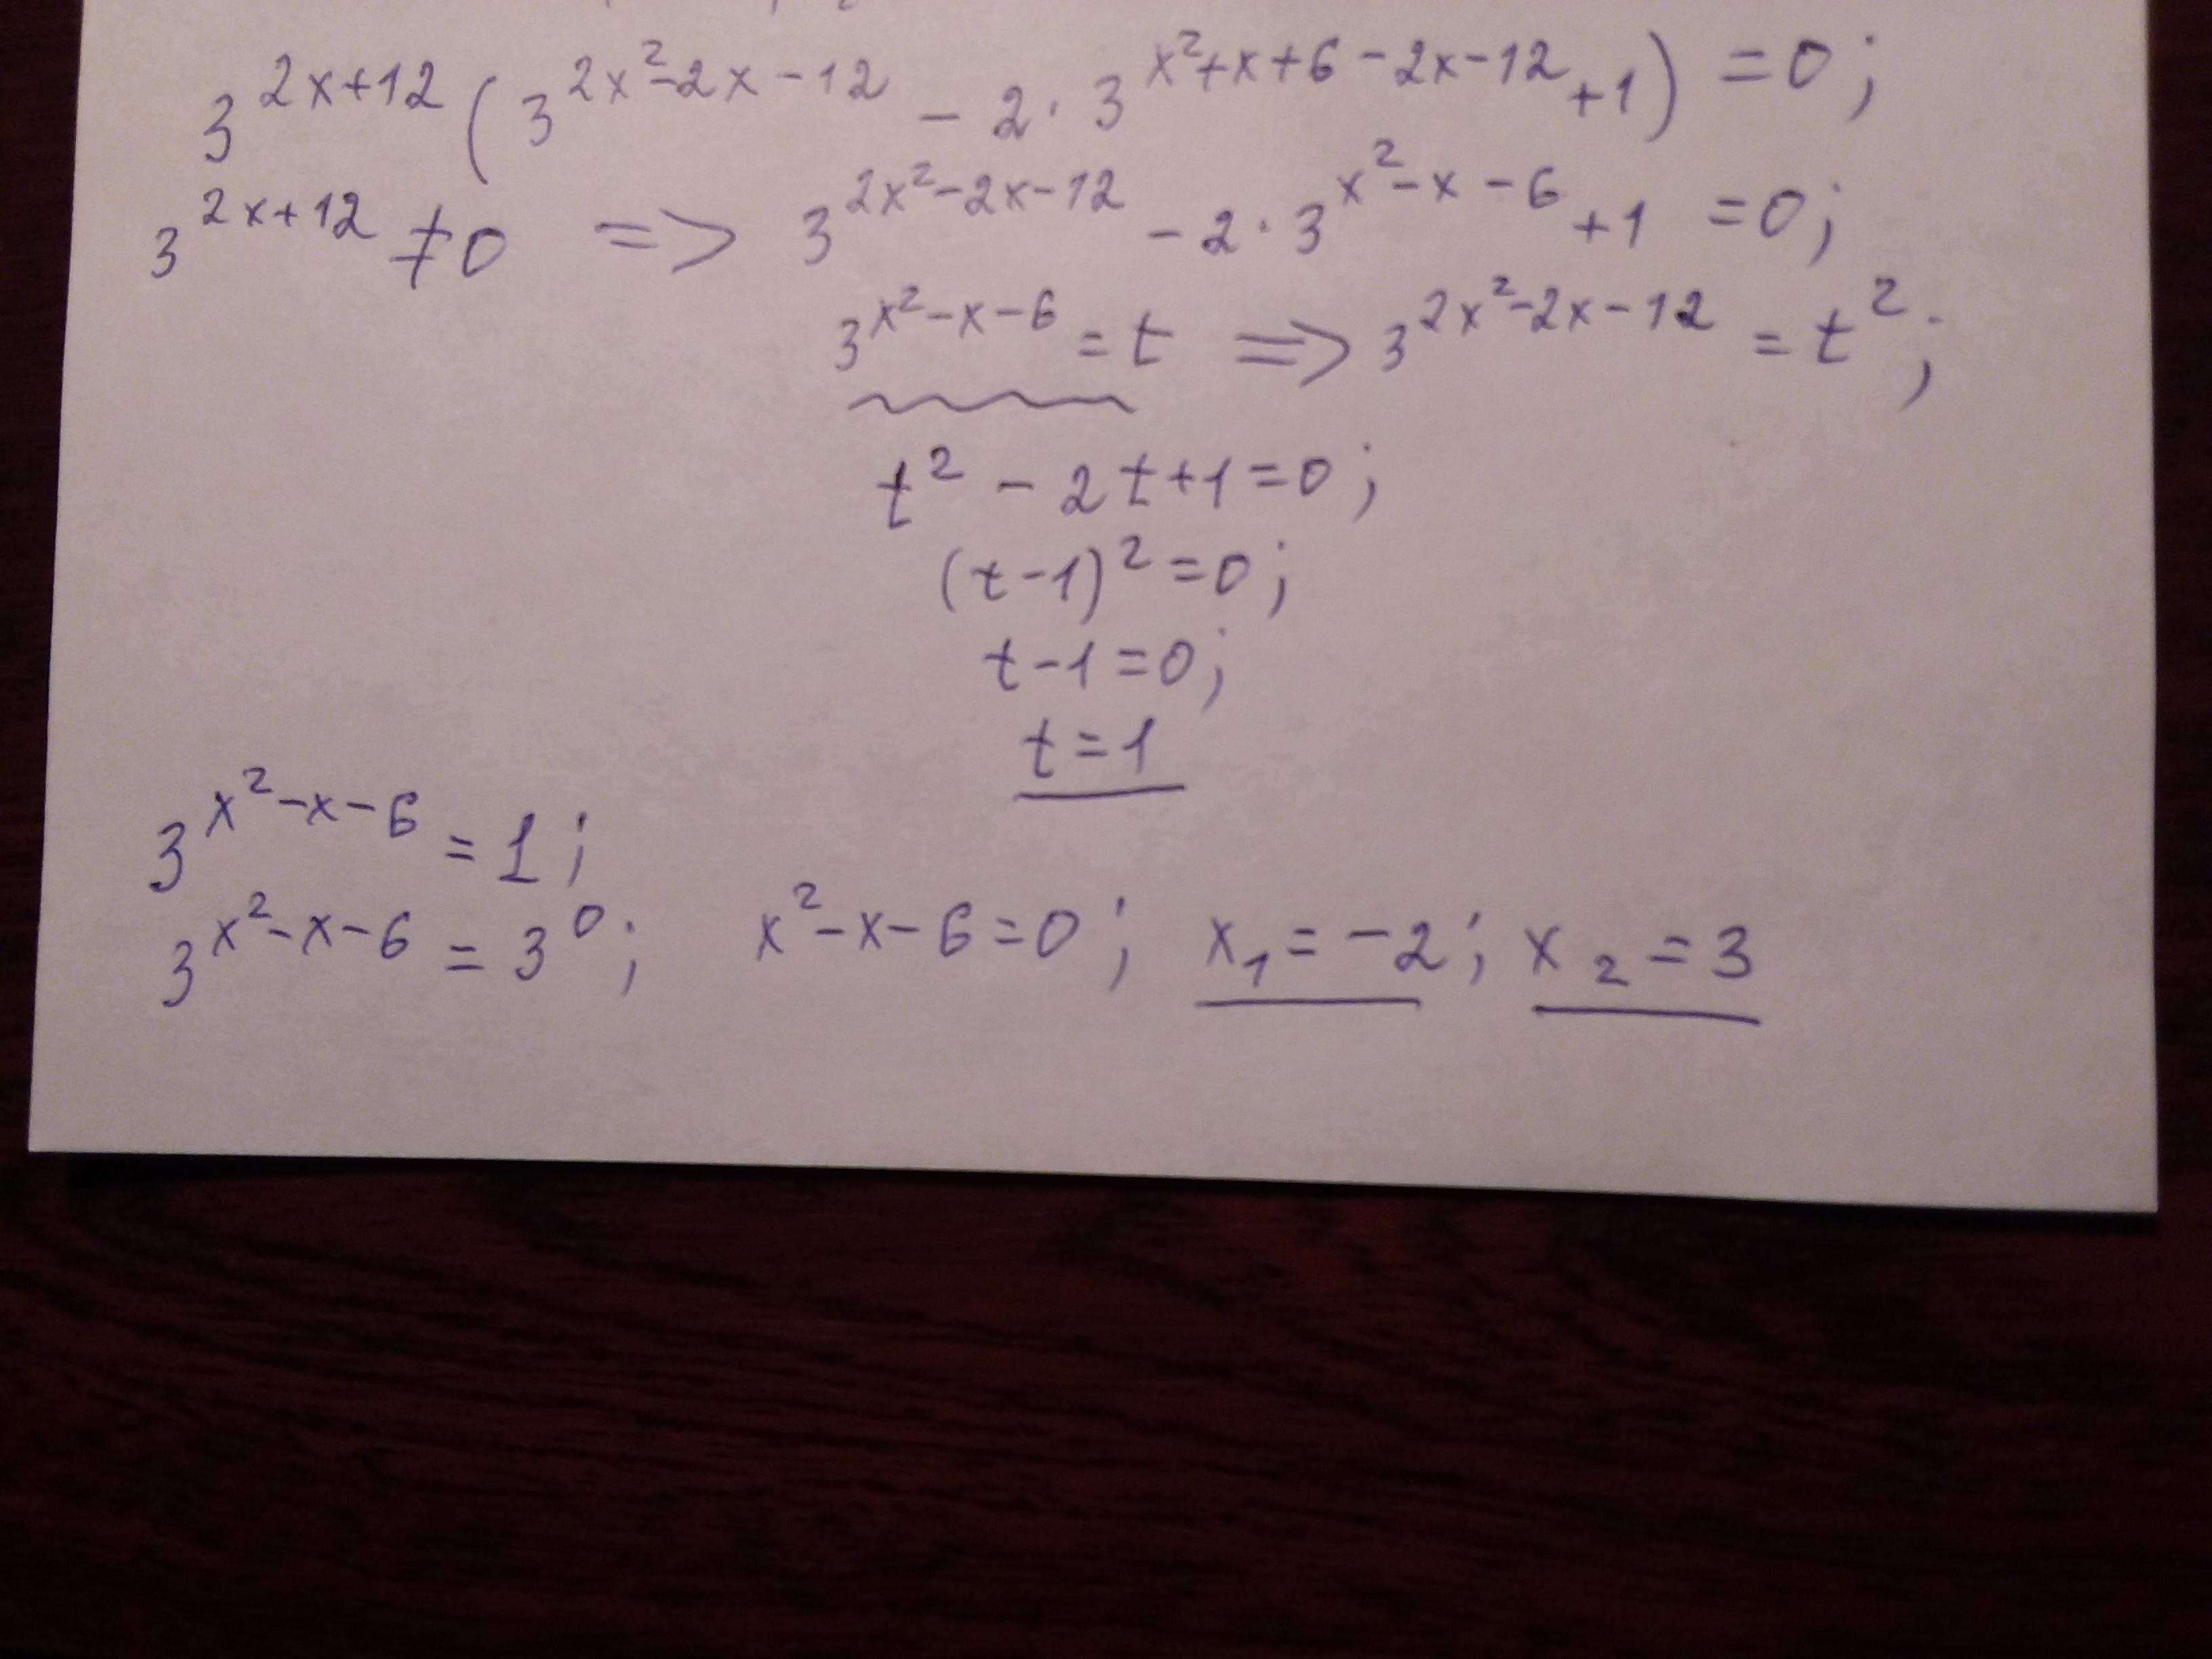 3^{2x+12} (3^{2x²-2x-12} - 2 · 3^{x²+x+6-2x-12} + 1) = 0;
3^{2x+12} ≠ 0 => 3^{2x²-2x-12} - 2 · 3^{x²-x-6} + 1 = 0;
3^{x²-x-6} = t => 3^{2x²-2x-12} = t²;
t² - 2t + 1 = 0;
(t-1)² = 0;
t - 1 = 0;
t = 1
3^{x²-x-6} = 1;
3^{x²-x-6} = 3⁰; x²-x-6=0; x₁ = -2; x₂ = 3